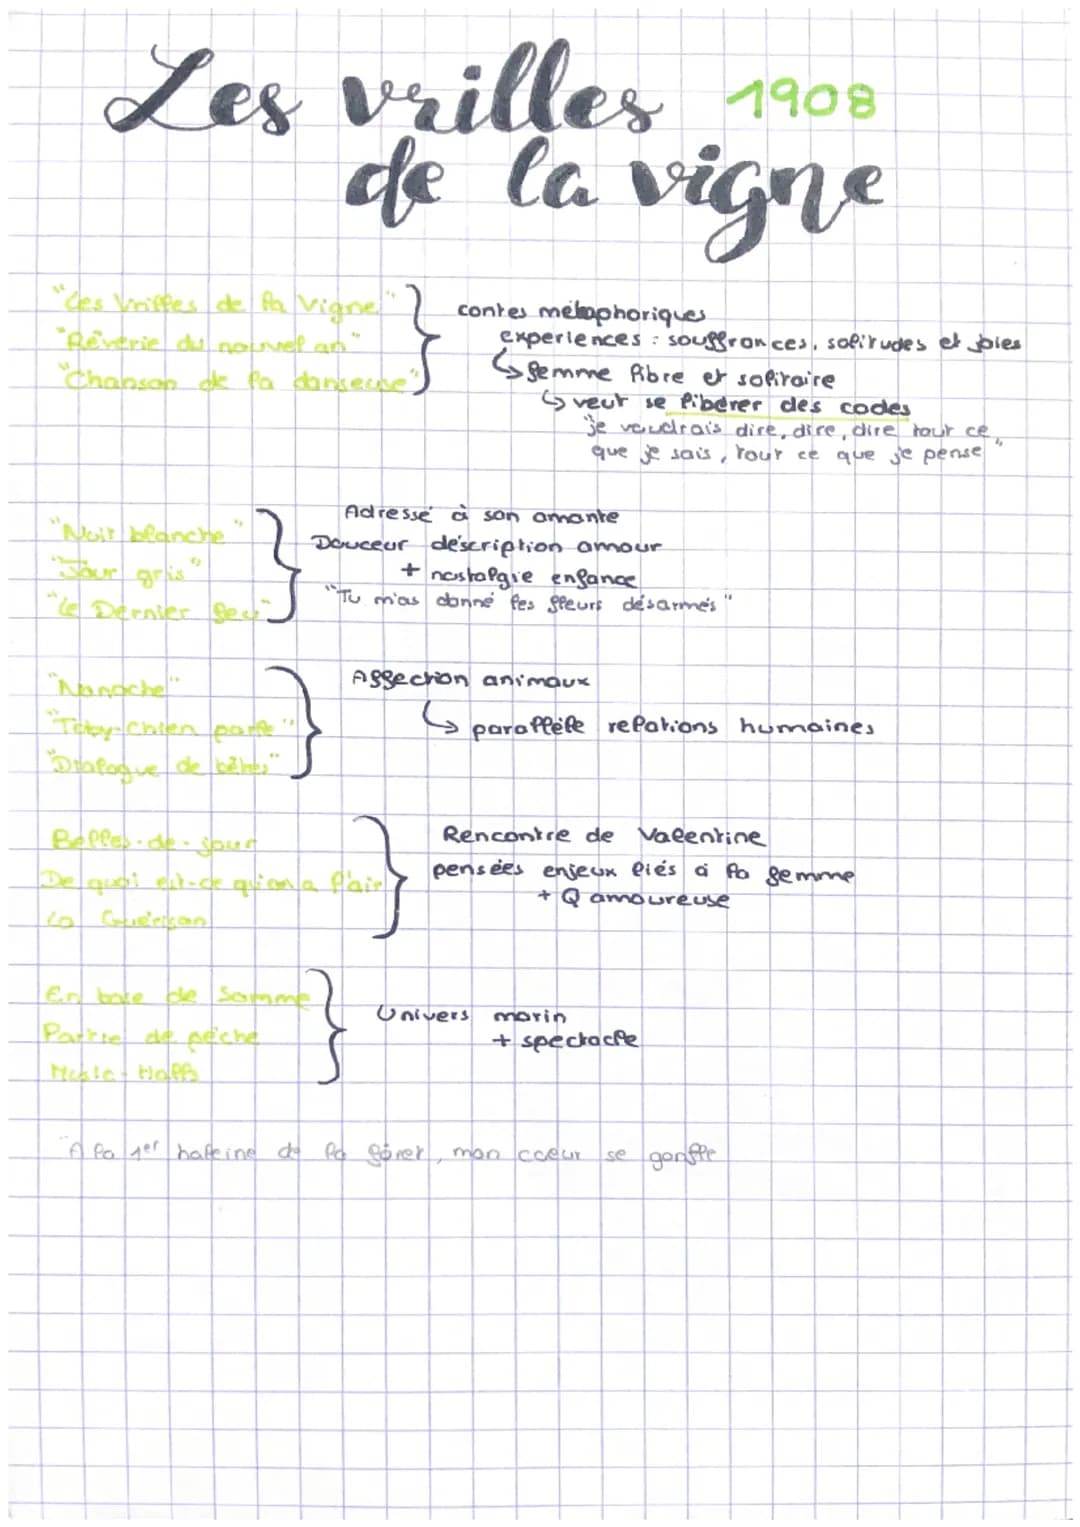 Les vrilles 1908
de la vigne
"Les Vrilles de la Vigne"
"Rêverie du nouvel an"
"Chanson de la danseuse"
contes métaphoriques
experiences : souffrances, solitudes et joies
↳ femme libre et solitaire
↳ veut se libérer des codes
"je voudrais dire, dire, dire tout ce
que je sais, tout ce que je pense"
"Nuit blanche"
"Jour gris"
"Le Dernier feu"
Adressé à son amante
Douceur déscription amour
+ nostalgie enfance
"Tu m'as donné les fleurs désarmés"
"Nonoche"
"Toby-Chien parle"
"Dialogue de bêtes"
Affection animaux
↳ parallèle relations humaines
Belles-de-jour
De quoi est-ce qu'on a l'air
La Guérison
Rencontre de Valentine
pensées enjeux liés à la femme
+ Q amoureuse
En baie de Somme
Partie de pêche
Music-Halls
Univers marin
+ spectacle
"A la 1er haleine de la fôret, mon coeur se gonfle